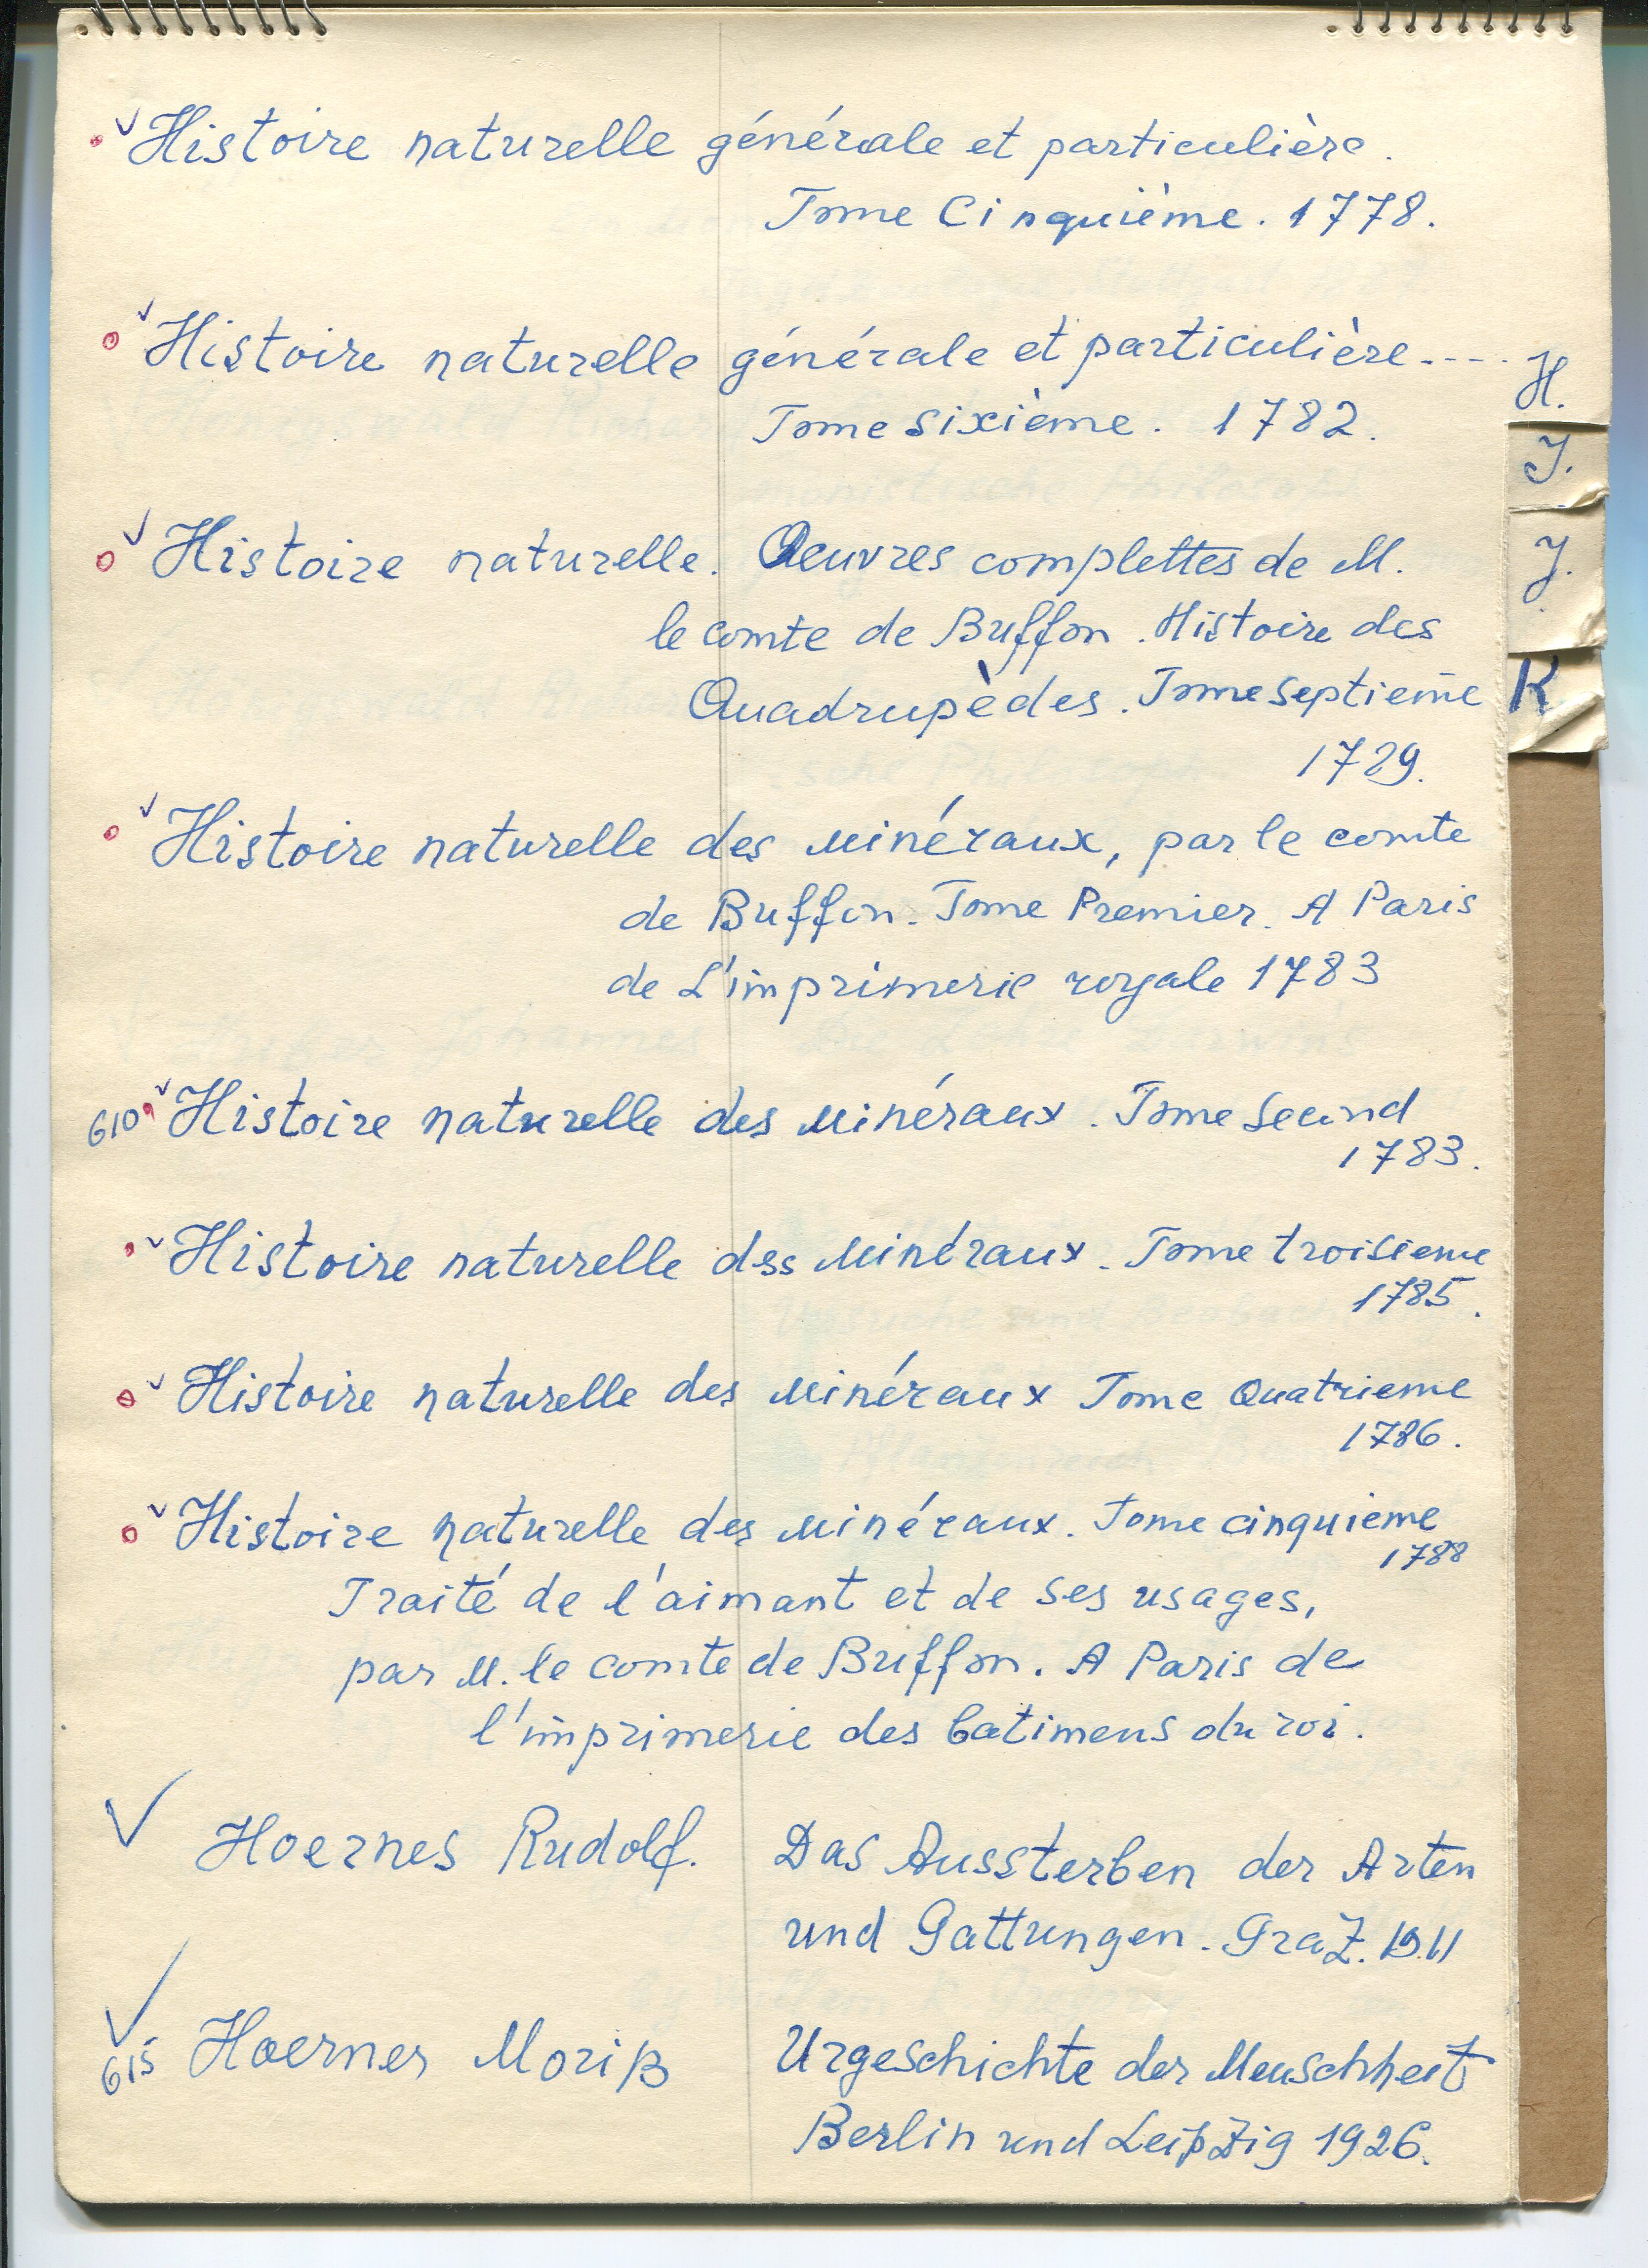 Histoire naturelle générale et particulière.
Tome Cinquième. 1778.
Histoire naturelle générale et particulière----
Tome sixième. 1782.
Histoire naturelle. Oeuvres complettes de M.
le comte de Buffon. Histoire des
Quadrupèdes. Tome septieme
1789.
Histoire naturelle des minéraux, par le comte
de Buffon. Tome Premier. A Paris
de L'imprimerie royale 1783
610 Histoire naturelle des minéraux. Tome Second
1783.
Histoire naturelle des minéraux. Tome troisieme
1785.
Histoire naturelle des minéraux Tome Quatrieme
1786.
Histoire naturelle des minéraux. Tome cinquieme
1788
Traité de l'aimant et de ses usages,
par M. le comte de Buffon. A Paris de
l'imprimerie des batimens du roi.
Hoernes Rudolf. Das Aussterben der Arten
und Gattungen. Graz. 1911
615 Hoernes Moriß Urgeschichte der Menschheit
Berlin und Leipzig 1926.
H.
I.
J.
K